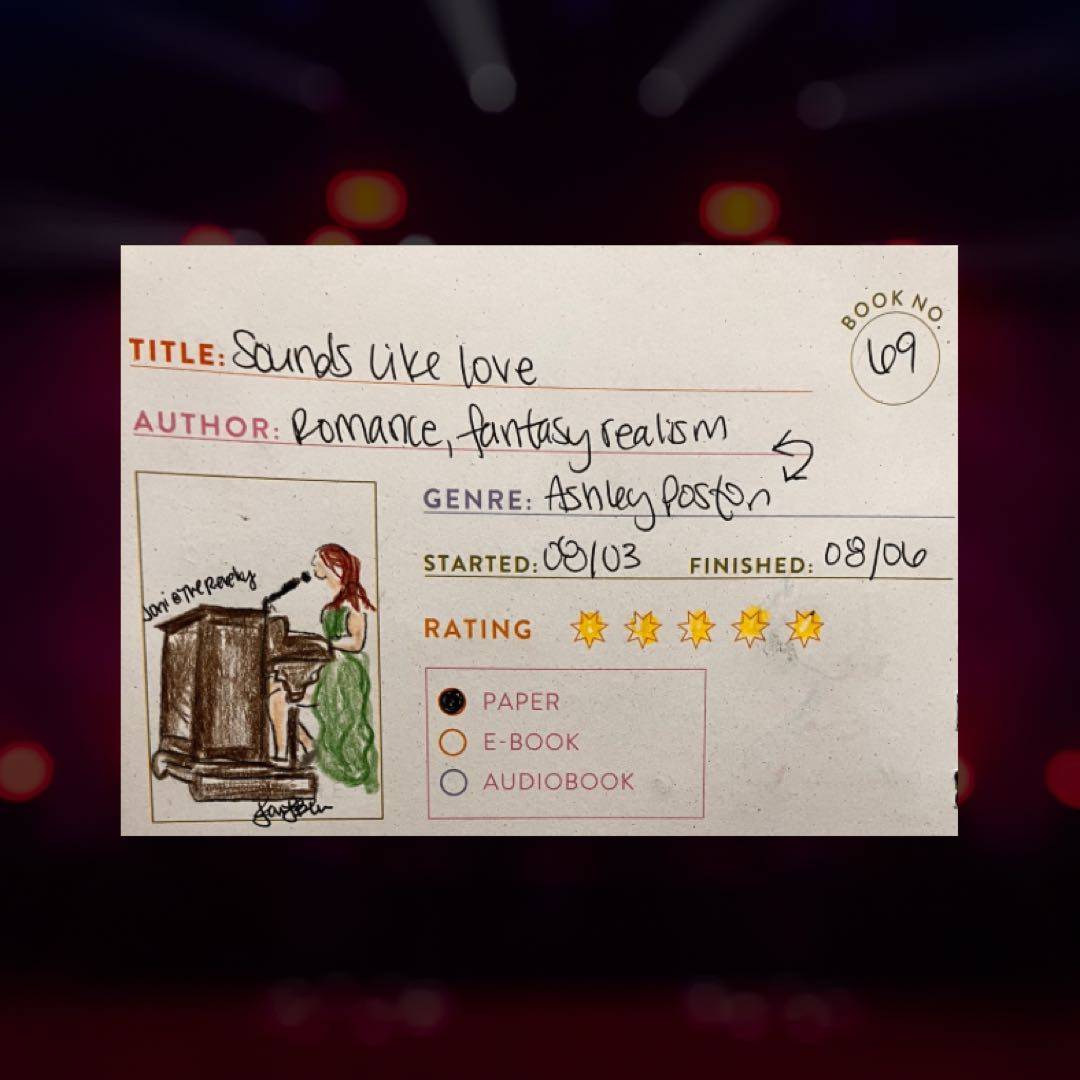 BOOK NO.
69
TITLE: Sounds Like love
AUTHOR: Romance, fantasy realism
GENRE: Ashley Poston
STARTED: 08/03 FINISHED: 08/06
Joni @ The Revelry
RATING
PAPER
E-BOOK
AUDIOBOOK